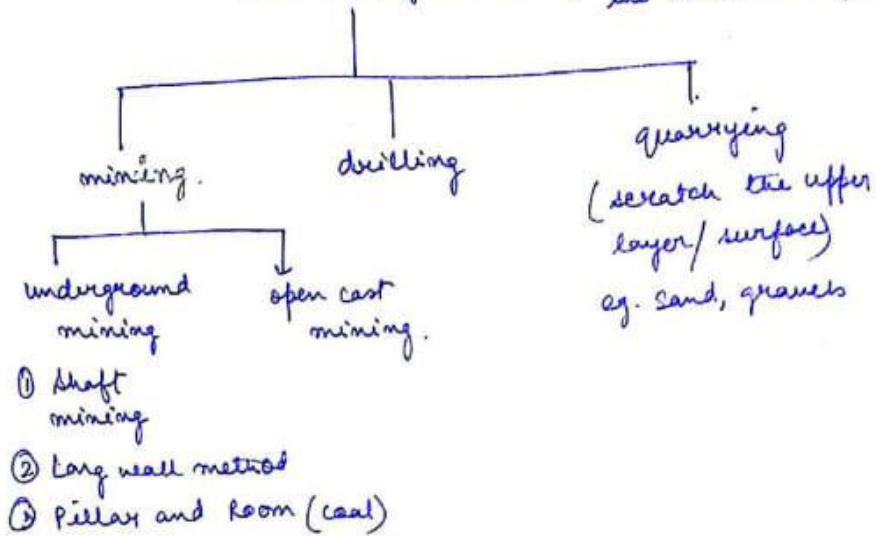 the
mining.
drilling
quarrying
(scratch the upper
layer/surface)
eg. sand, gravels
underground
mining
open cast
mining.
① Shaft
mining
② Long wall method
③ Pillar and Room (coal)